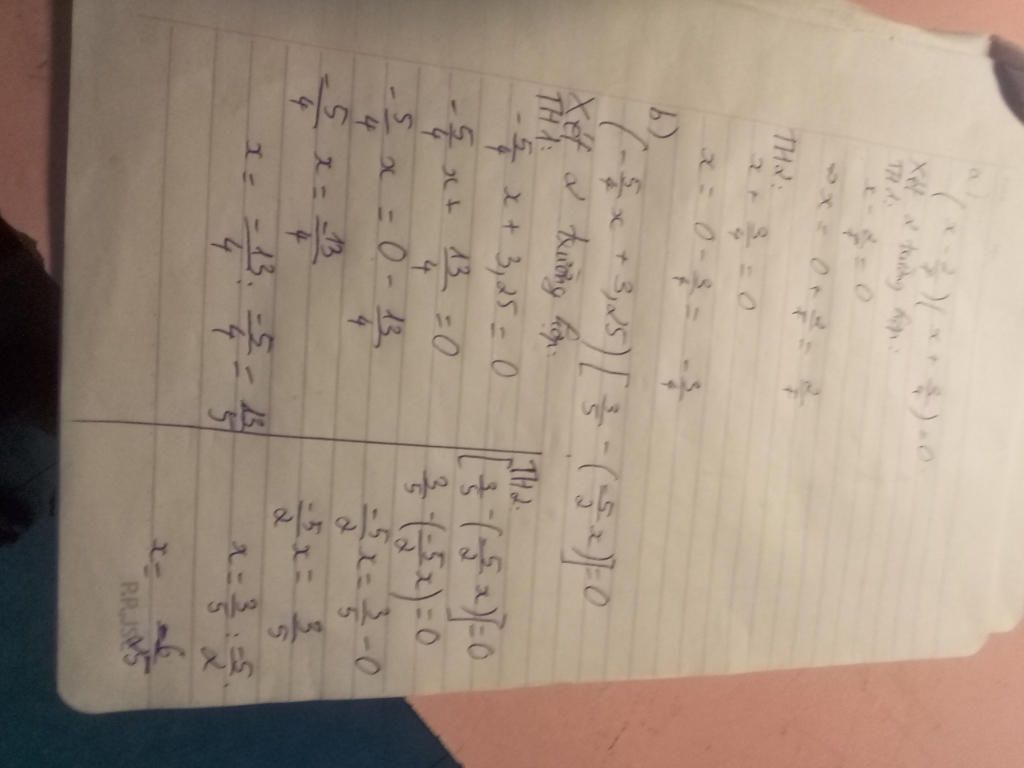 a)
(x - 2/7)(x + 3/4) = 0
Xét 2 trường hợp:
TH1:
x - 2/7 = 0
⇒ x = 0 + 2/7 = 2/7
TH2:
x + 3/4 = 0
x = 0 - 3/4 = -3/4
b)
(-5/4 x + 3,25) [3/5 - (-5/2 x)] = 0
Xét 2 trường hợp:
TH1:
-5/4 x + 3,25 = 0
-5/4 x + 13/4 = 0
-5/4 x = 0 - 13/4
-5/4 x = -13/4
x = -13/4 : -5/4 = 13/5
TH2:
[3/5 - (-5/2 x)] = 0
3/5 - (-5/2 x) = 0
-5/2 x = 3/5 - 0
-5/2 x = 3/5
x = 3/5 : -5/2
x = -6/25